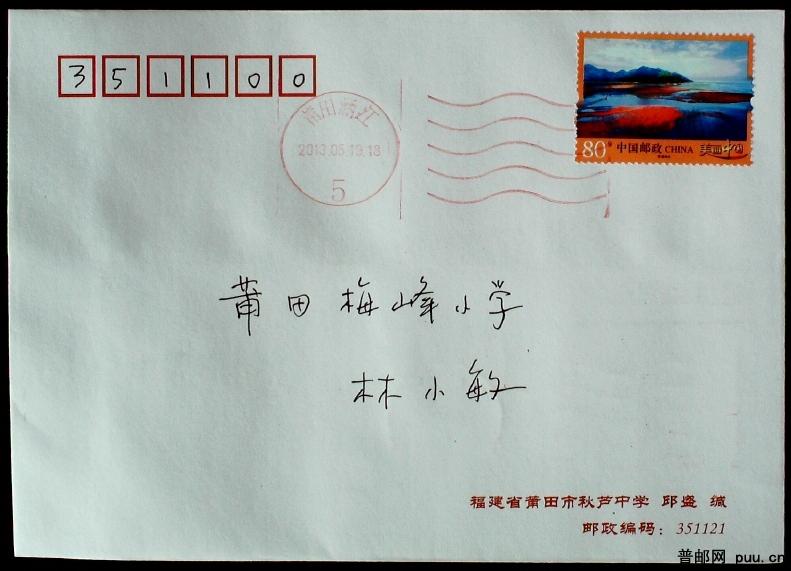 351100
莆田涵江
2013.05.19.18
5
80分 中国邮政 CHINA 美丽中国
莆田梅峰小学
林小敏
福建省莆田市秋芦中学 邱盛 缄
邮政编码：351121
普邮网 puu.cn